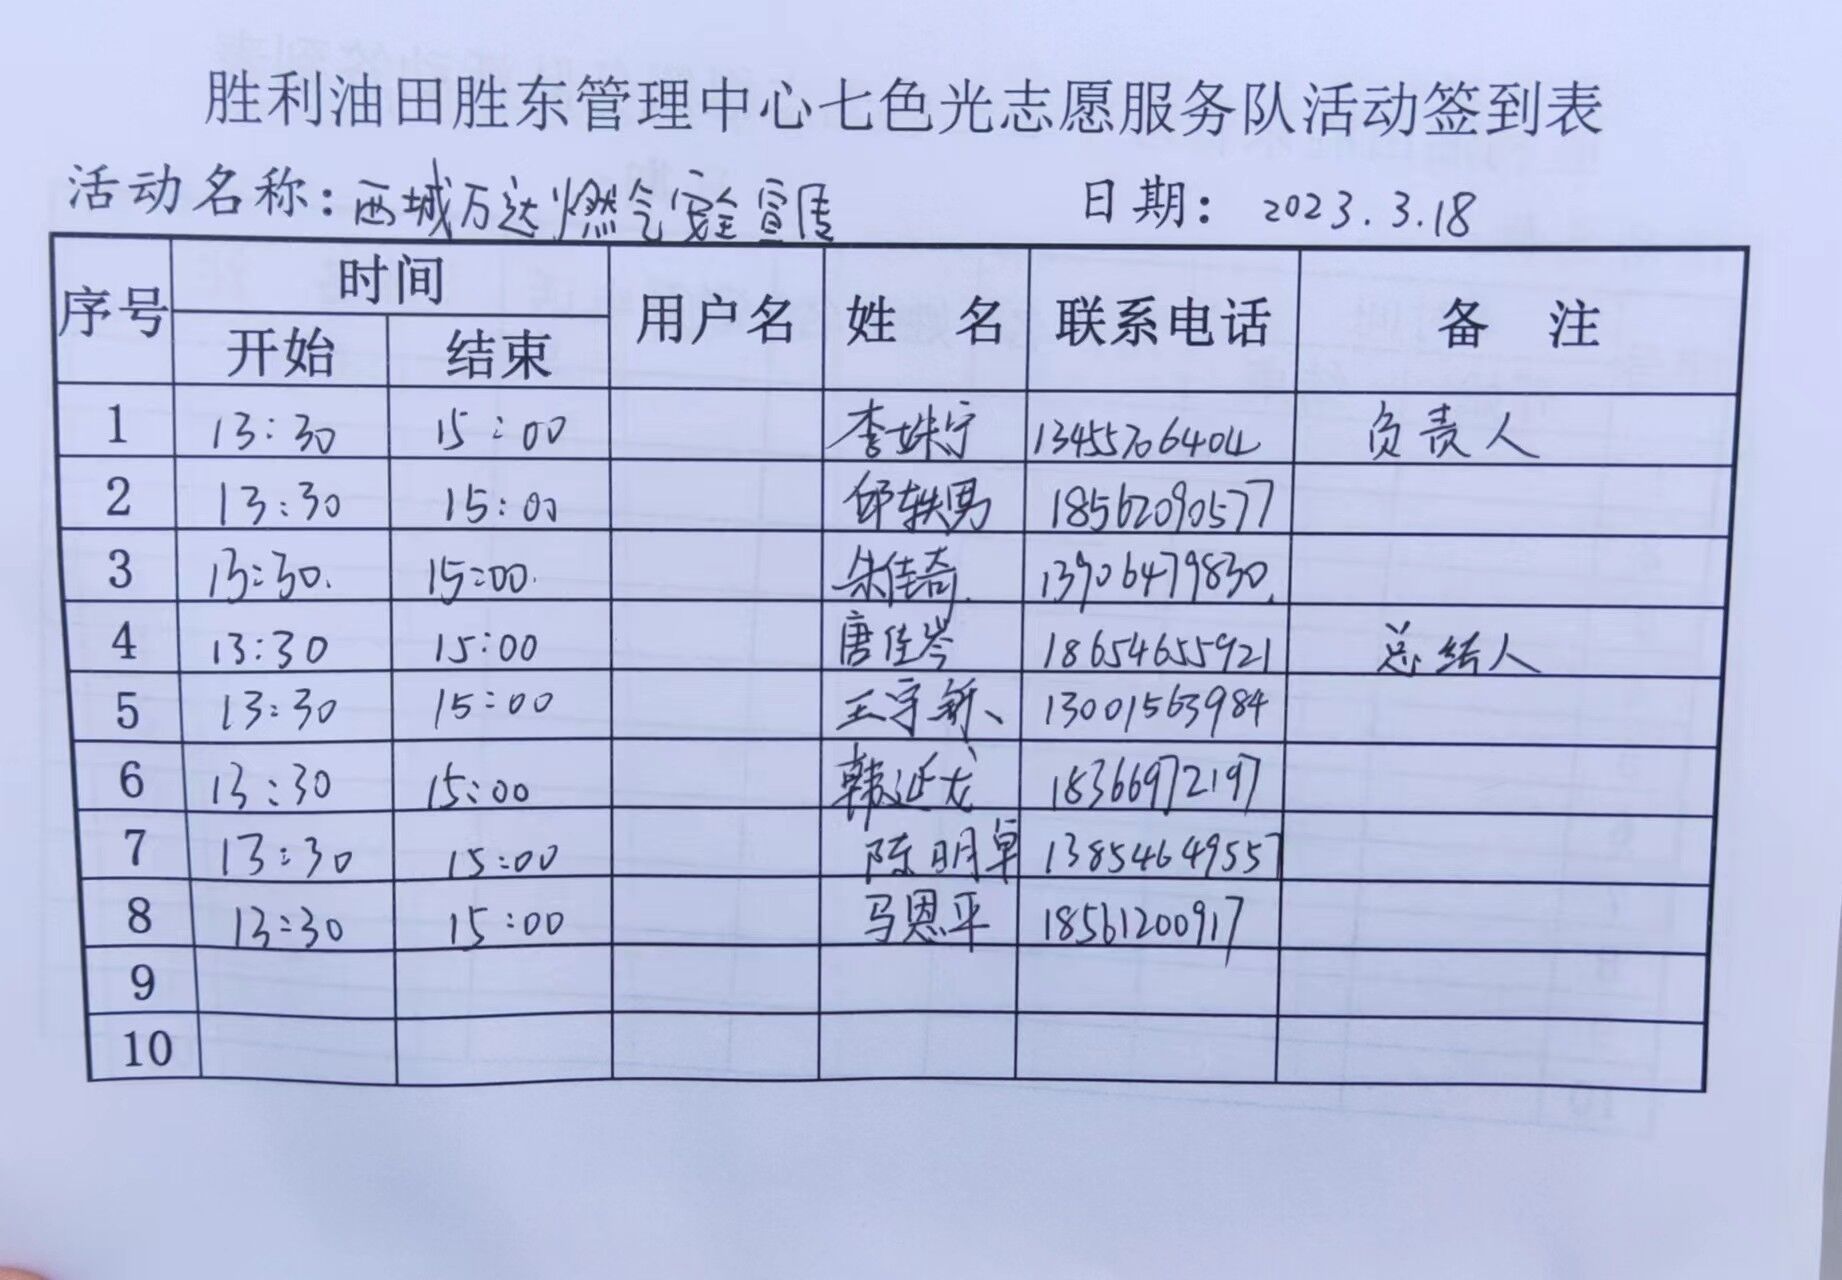 胜利油田胜东管理中心七色光志愿服务队活动签到表
活动名称：西城万达燃气安全宣传 日期：2023.3.18
序号 时间 用户名 姓名 联系电话 备注
开始 结束
1 13:30 15:00 李姝宁 13455706404 负责人
2 13:30 15:00 邱轶男 18562090577
3 13:30. 15:00. 朱佳奇. 13906479830.
4 13:30 15:00 唐佳岑 18654655921 总结人
5 13:30 15:00 王宇新、 13001563984
6 13:30 15:00 韩延龙 18366972197
7 13:30 15:00 陈明卓 13854649557
8 13:30 15:00 马恩平 18561200917
9
10